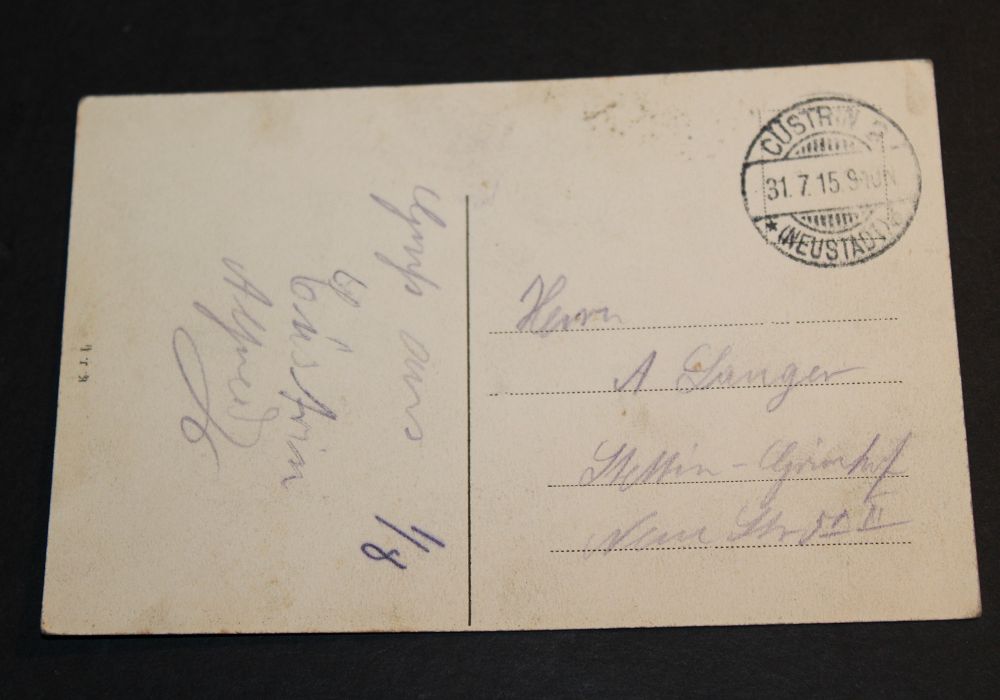 CÜSTRIN 2
31.7.15. 9-10N
(NEUSTADT)
Gruß aus
Cüstrin
Alfred
1/8
Herrn
A Langer
Stettin-Grünhof
Neue Str 51 II